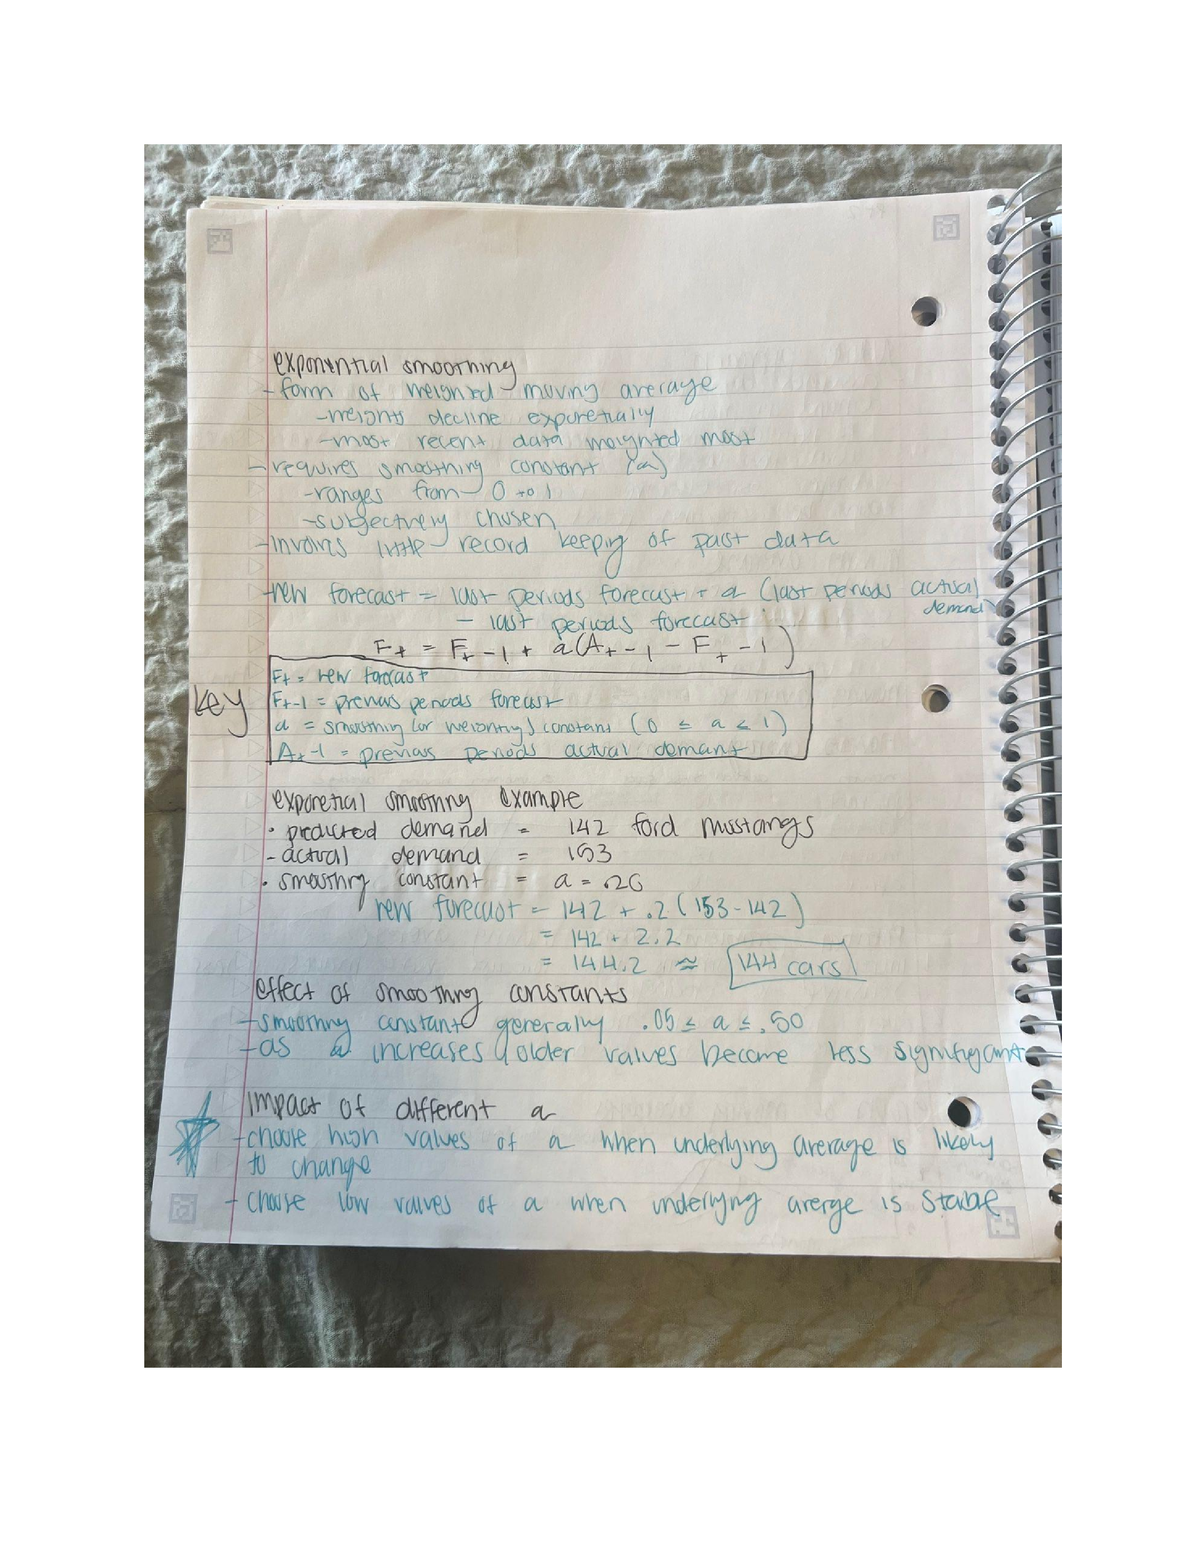 exponential smoothing
- form of weighted moving average
- weights decline exponetially
- most recent data weighted most
- requires smoothing constant (a)
- ranges from 0 to 1
- subjectively chosen
- involves little record keeping of past data
- new forecast = last periods forecast + a (last periods actual demand
- last periods forecast
Ft = Ft-1 + a(At-1 - Ft-1)
Key
Ft = new forecast
Ft-1 = previous periods forecast
a = smoothing (or weighting) constant (0 ≤ a ≤ 1)
At-1 = previous periods actual demant
exponetial smoothing example
• predicted demand = 142 ford mustangs
- actual demand = 153
• smoothing constant = a = .20
new forecast = 142 + .2 (153-142)
= 142 + 2.2
= 144.2 ≈ 144 cars
effect of smoothing constants
- smoothing constant generally .05 ≤ a ≤ .50
- as a increases, older values become less signifigant
impact of different a
- choose high values of a when underlying average is likely
to change
- choose low values of a when underlying averge is stable